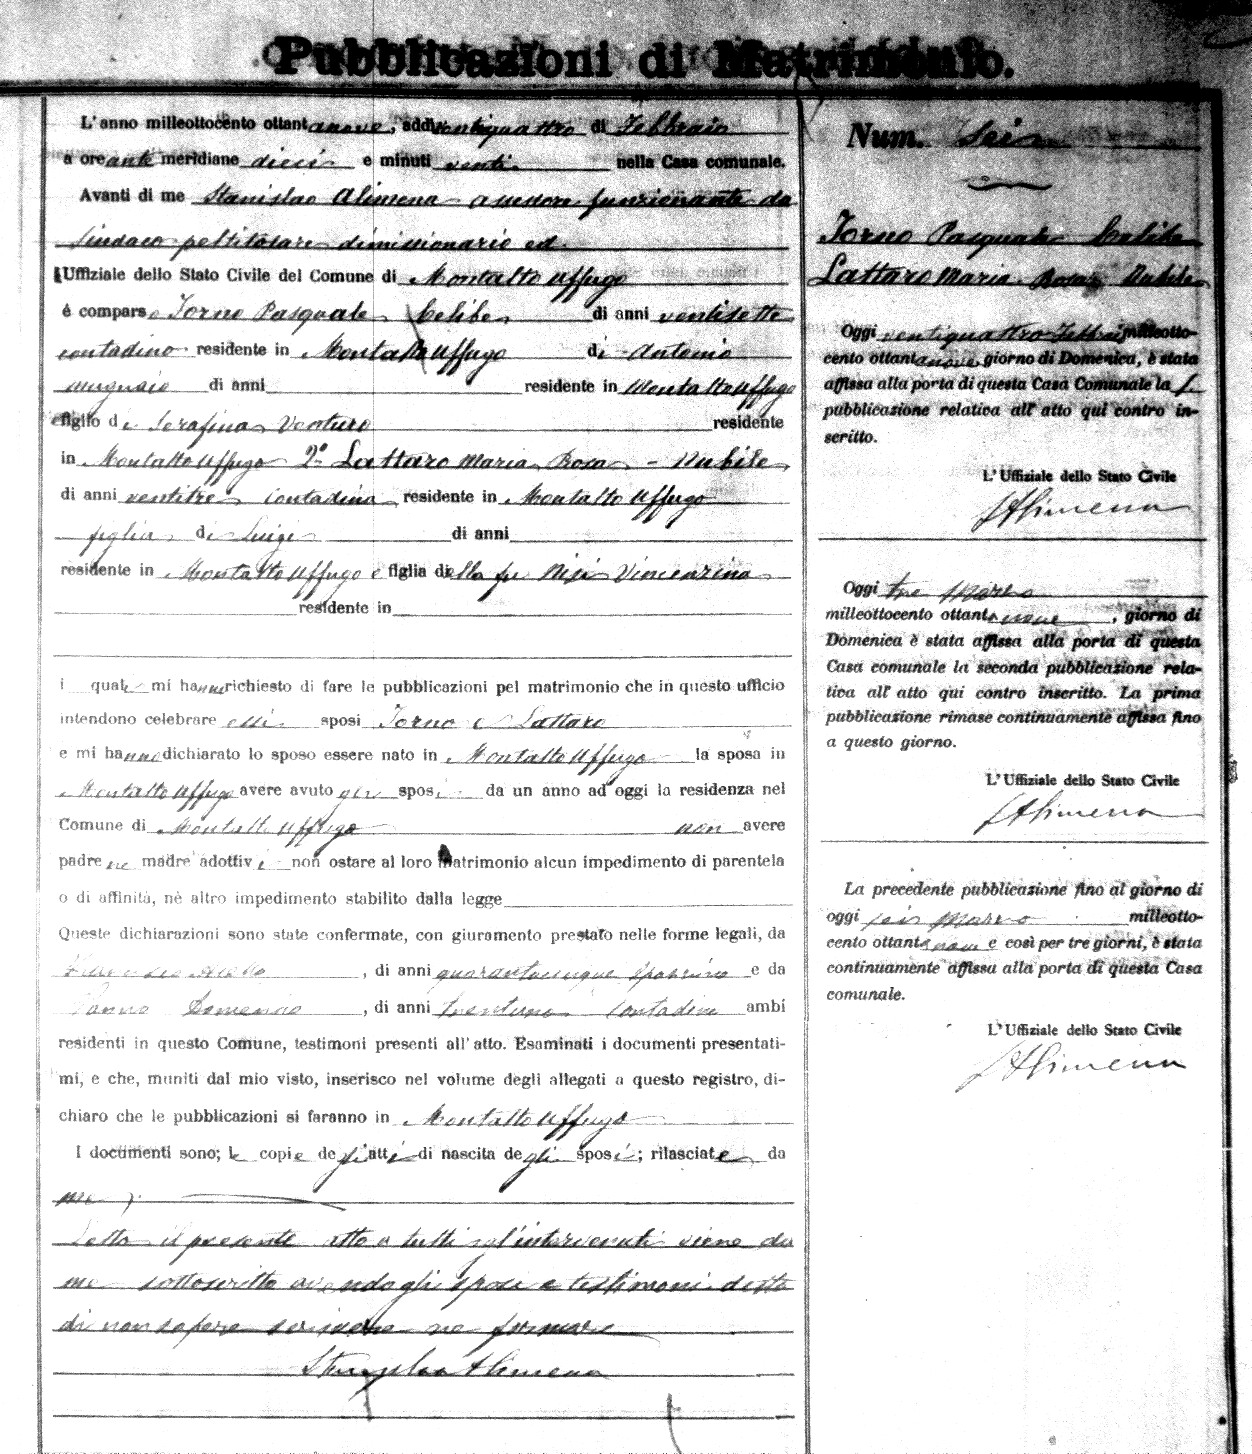 Pubblicazioni di Matrimonio.
L'anno milleottocento ottantanove, addi ventiquattro di Febbraio
a ore ante meridiane dieci e minuti venti nella Casa comunale.
Avanti di me Stanislao Alimena assessore funzionante da
Sindaco pel titolare dimissionario ed
Uffiziale dello Stato Civile del Comune di Montalto Uffugo
è comparso Torno Pasquale Celibe di anni ventisette
contadino residente in Montalto Uffugo di Antonio
di anni residente in Montalto Uffugo
e figlio di Serafina Venturo residente
in Montalto Uffugo 2º Lattaro Maria Rosa - Nubile
di anni ventitre contadina residente in Montalto Uffugo
figlia di Luigi di anni
residente in Montalto Uffugo e figlia della fu Nisi Vincenzina
residente in
i quali mi hanno richiesto di fare le pubblicazioni pel matrimonio che in questo ufficio
intendono celebrare essi sposi Torno e Lattaro
e mi hanno dichiarato lo sposo essere nato in Montalto Uffugo la sposa in
Montalto Uffugo avere avuto gli sposi da un anno ad oggi la residenza nel
Comune di Montalto Uffugo non avere
padre ne madre adottivi non ostare al loro matrimonio alcun impedimento di parentela
o di affinità, nè altro impedimento stabilito dalla legge
Queste dichiarazioni sono state confermate, con giuramento prestato nelle forme legali, da
Francesco Aiello, di anni quarantacinque e da
Domenico, di anni trentuno contadino ambi
residenti in questo Comune, testimoni presenti all'atto. Esaminati i documenti presentati-
mi, e che, muniti dal mio visto, inserisco nel volume degli allegati a questo registro, di-
chiaro che le pubblicazioni si faranno in Montalto Uffugo
I documenti sono; le copie degli atti di nascita degli sposi; rilasciate da
me
Letto il presente atto a tutti gl'intervenuti viene da
me sottoscritto avendo gli sposi e testimoni detto
di non sapere scrivere ne firmare
Stanislao Alimena
Num. Sei
Torno Pasquale Celibe
Lattaro Maria Rosa Nubile
Oggi ventiquattro Febbraio milleotto-
cento ottantanove giorno di Domenica, è stata
affissa alla porta di questa Casa Comunale la
pubblicazione relativa all'atto qui contro in-
scritto.
L'Uffiziale dello Stato Civile
S Alimena
Oggi tre Marzo
milleottocento ottantanove, giorno di
Domenica è stata affissa alla porta di questa
Casa comunale la seconda pubblicazione rela-
tiva all'atto qui contro inscritto. La prima
pubblicazione rimase continuamente affissa fino
a questo giorno.
L'Uffiziale dello Stato Civile
S Alimena
La precedente pubblicazione fino al giorno di
oggi sei Marzo milleotto-
cento ottantanove e così per tre giorni, è stata
continuamente affissa alla porta di questa Casa
comunale.
L'Uffiziale dello Stato Civile
S Alimena